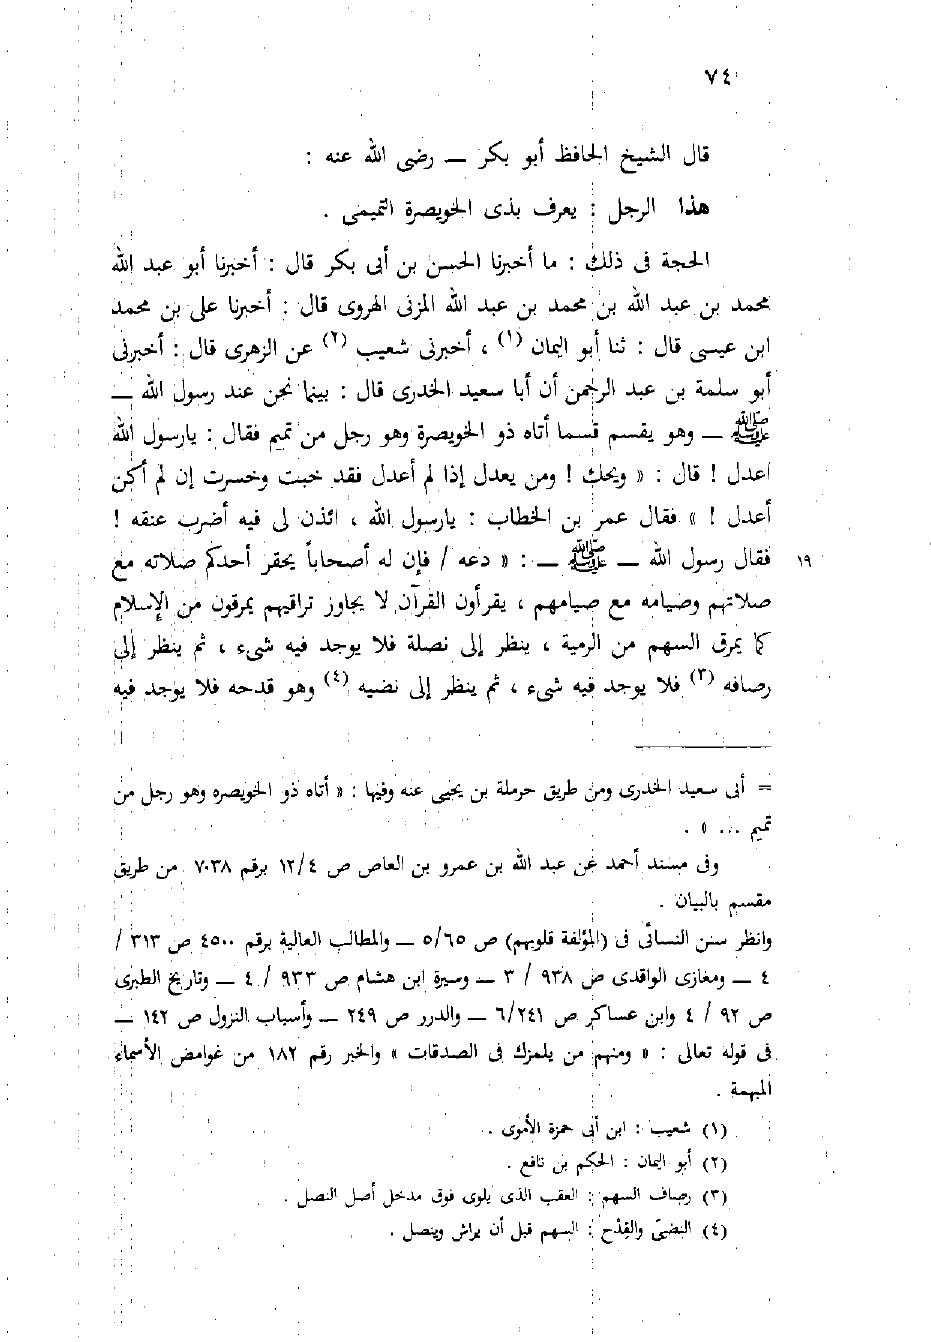 ٧٤
قال الشيخ الحافظ أبو بكر — رضى الله عنه :
هذا الرجل : يعرف بذى الخويصرة التميمى .
الحجة فى ذلك : ما أخبرنا الحسن بن أبى بكر قال : أخبرنا أبو عبد الله
محمد بن عبد الله بن محمد بن عبد الله المزنى الهروى قال : أخبرنا على بن محمد
ابن عيسى قال : ثنا أبو اليمان (١) ، أخبرنى شعيب (٢) عن الزهرى قال : أخبرنى
أبو سلمة بن عبد الرحمن أن أبا سعيد الخدرى قال : بينما نحن عند رسول الله —
ﷺ — وهو يقسم قسما أتاه ذو الخويصرة وهو رجل من تميم فقال : يارسول الله
اعدل ! قال : « ويحك ! ومن يعدل إذا لم أعدل فقد خبت وخسرت إن لم أكن
أعدل ! » فقال عمر بن الخطاب : يارسول الله ، ائذن لى فيه أضرب عنقه !
١٩ فقال رسول الله — ﷺ — : « دعه / فإن له أصحاباً يحقر أحدكم صلاته مع
صلاتهم وصيامه مع صيامهم ، يقرأون القرآن لا يجاوز تراقيهم يمرقون من الإسلام
كما يمرق السهم من الرمية ، ينظر إلى نصلة فلا يوجد فيه شىء ، ثم ينظر إلى
رصافه (٣) فلا يوجد فيه شىء ، ثم ينظر إلى نضيه (٤) وهو قدحه فلا يوجد فيه
= أبى سعيد الخدرى ومن طريق حرملة بن يحيى عنه وفيها : « أتاه ذو الخويصره وهو رجل من
تميم ... » .
وفى مسند أحمد عن عبد الله بن عمرو بن العاص ص ١٢/٤ برقم ٧٠٣٨ من طريق
مقسم بالبيان .
وانظر سنن النسائى فى (المؤلفة قلوبهم) ص ٥/٦٥ — والمطالب العالية برقم ٤٥٠٠ ص ٣١٣ /
٤ — ومغازى الواقدى ص ٩٣٨ / ٣ — وسيرة ابن هشام ص ٩٣٣ / ٤ — وتاريخ الطبرى
ص ٩٢ / ٤ وابن عساكر ص ٦/٢٤١ — والدرر ص ٢٤٩ — وأسباب النزول ص ١٤٢ —
فى قوله تعالى : « ومنهم من يلمزك فى الصدقات » والخبر رقم ١٨٢ من غوامض الأسماء
المبهمة .
(١) شعيب : ابن أبى حمزة الأموى .
(٢) أبو اليمان : الحكم بن نافع .
(٣) رصاف السهم : العقب الذى يلوى فوق مدخل أصل النصل .
(٤) النضىّ والقِدْح : السهم قبل أن يراش وينصل .